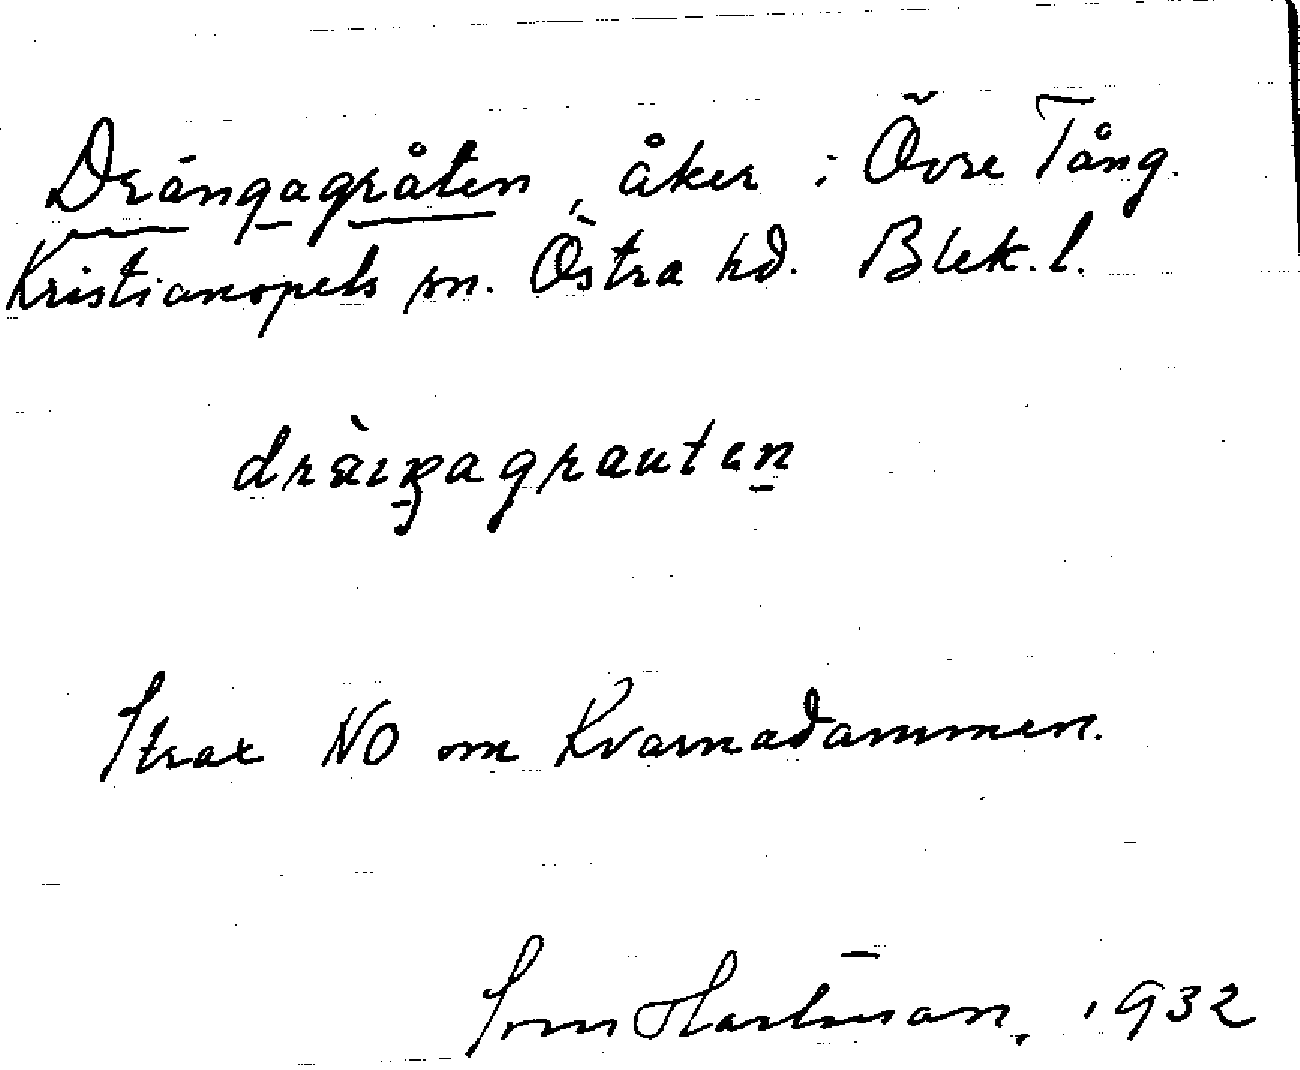 Drängagråten, åker i Övre Tång.
Kristianopels sn. Östra hd. Blek. l.
dràiŋagrauten
Strax NO om Kvarnadammen.
Sven Hartman, 1932